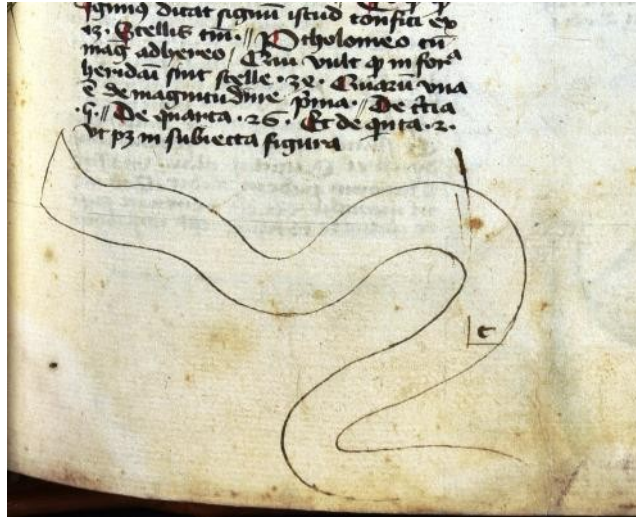 dicat signū istud confici ex
.13. Stellis tm̄. Ptholomeo tn̄
magͥ adhereo Qui vult qͥ in forᵃ
sint stelle .3e. Quarū vna
ē de magnitudīne pͥma. De t̄cia
.5. De quarta .26. Et de qͥnta .2.
vt pꝫ in subiecta figura
c